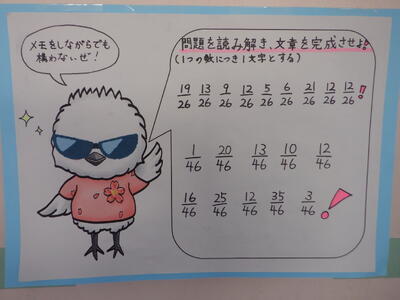 メモをしながらでも
構わないぜ!
問題を読み解き、文章を完成させよ!
(1つの数につき1文字とする)
19/26 13/26 9/26 12/26 5/26 6/26 21/26 12/26 12/26 !
1/46 20/46 13/46 10/46 12/46
16/46 25/46 12/46 35/46 3/46 !